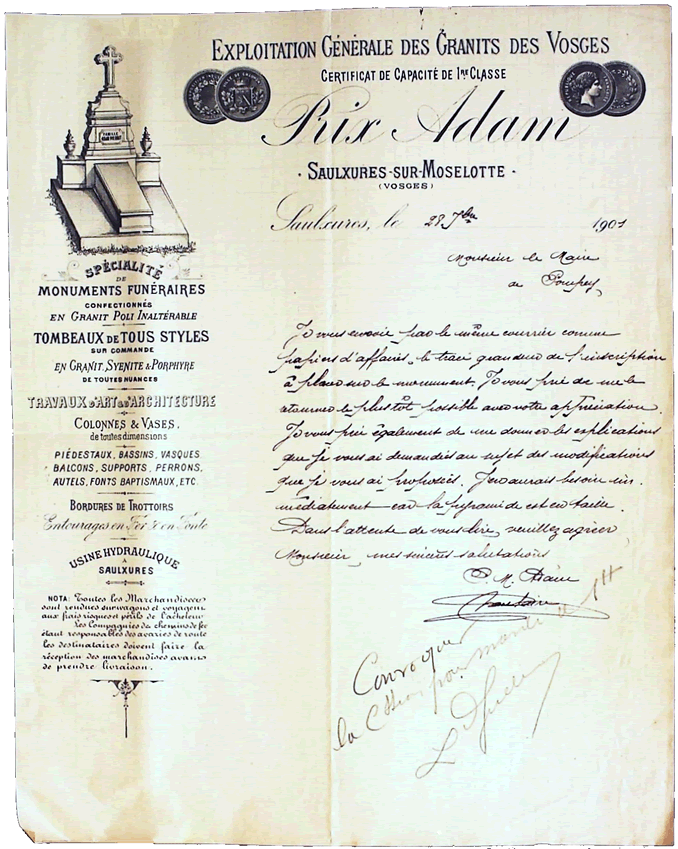 EXPLOITATION GÉNÉRALE DES GRANITS DES VOSGES
CERTIFICAT DE CAPACITÉ DE 1RE CLASSE
Rix Adam
SAULXURES-SUR-MOSELOTTE
(VOSGES)
Saulxures, le 28 7bre 1901
Monsieur le Maire
de Pompey
Je vous envoie par le même courrier comme
papiers d'affaires, le tracé grandeur de l'inscription
à placer sur le monument. Je vous prie de me le
retourner le plus tôt possible avec votre appréciation.
Je vous prie également de me donner les explications
que je vous ai demandées au sujet des modifications
que je vous ai proposées. J'en aurais besoin im-
médiatement car la pyramide est en taille.
Dans l'attente de vous lire, veuillez agréer
Monsieur, mes sincères salutations
Convoquer
la pour mardi
SPÉCIALITÉ
DE
MONUMENTS FUNÉRAIRES
CONFECTIONNÉS
EN GRANIT POLI INALTÉRABLE
TOMBEAUX DE TOUS STYLES
SUR COMMANDE
EN GRANIT, SYENITE & PORPHYRE
DE TOUTES NUANCES
TRAVAUX D'ART & D'ARCHITECTURE
COLONNES & VASES.
de toutes dimensions
PIÉDESTAUX, BASSINS, VASQUES
BALCONS, SUPPORTS, PERRONS,
AUTELS, FONTS BAPTISMAUX, ETC.
BORDURES DE TROTTOIRS
Entourages en Fer & en Fonte
USINE HYDRAULIQUE
À
SAULXURES
NOTA: Toutes les Marchandises
sont rendues sur wagons et voyagent
aux frais risques et périls de l'acheteur
les Compagnies de chemins de fer
étant responsables des avaries de route
les destinataires doivent faire la
réception des marchandises avant
de prendre livraison.